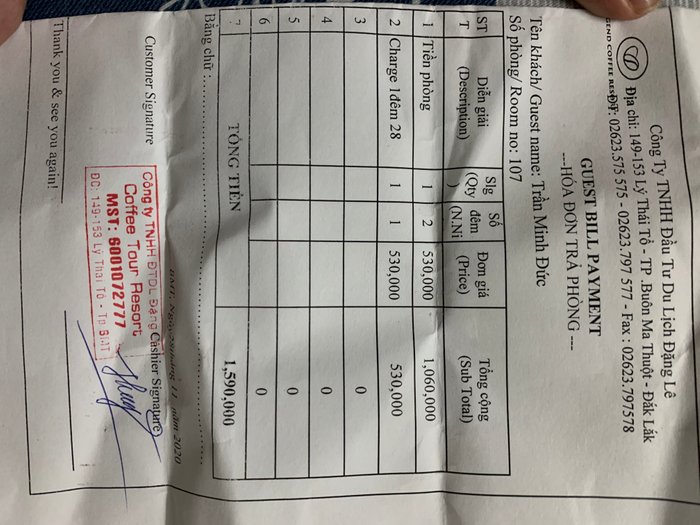 Công Ty TNHH Đầu Tư Du Lịch Đặng Lê
Địa chỉ: 149-153 Lý Thái Tổ - TP .Buôn Ma Thuột - Đăk Lăk
GEND COFFEE RESORT
ĐT: 02623.575 575 - 02623.797 577 - Fax : 02623.797578
GUEST BILL PAYMENT
---HÓA ĐƠN TRẢ PHÒNG ---
Tên khách/ Guest name: Trần Minh Đức
Số phòng/ Room no: 107
ST T Diễn giải (Description) Slg (Qty ) Số đêm (N.Ni Đơn giá (Price) Tổng cộng (Sub Total)
1 Tiền phòng 1 2 530,000 1,060,000
2 Charge 1đêm 28 1 1 530,000 530,000
3 0
4 0
5 0
6 0
7 TỔNG TIỀN 1,590,000
Bằng chữ :
11 năm 2020
Customer Signature Cashier Signature
Công ty TNHH ĐTDL Đặng
Coffee Tour Resort
MST: 6001072777
ĐC: 149-153 Lý Thái Tổ - Tp. BMT
Thank you & see you again!